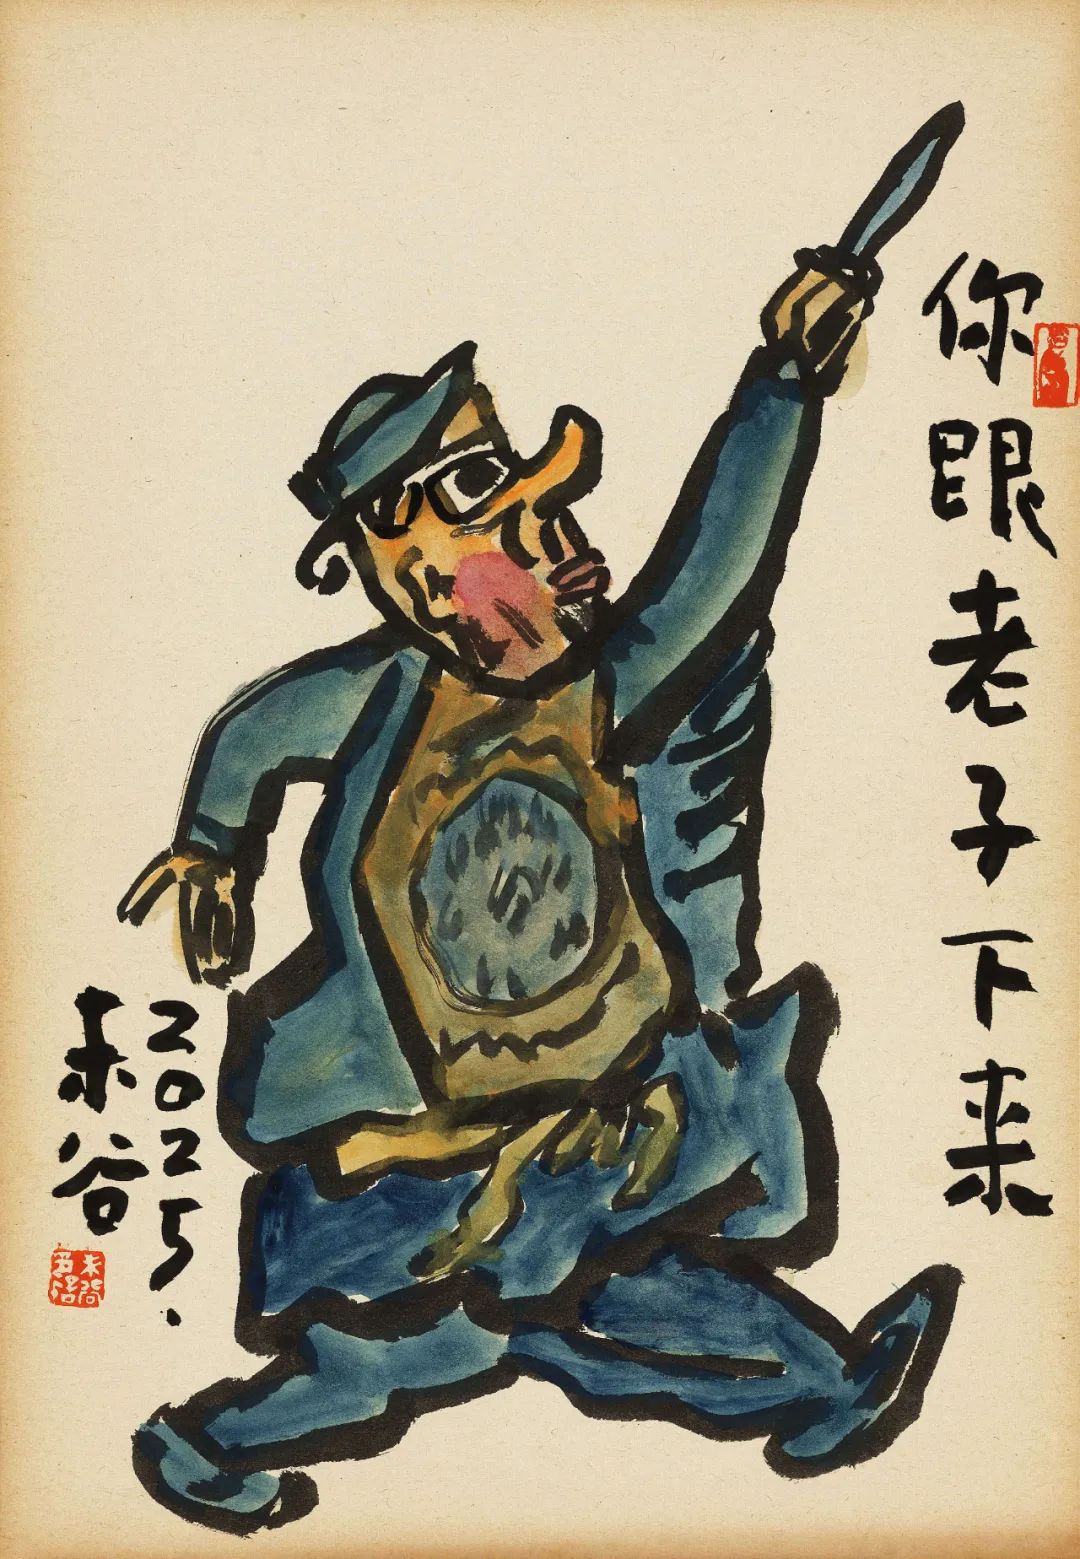 你跟老子下来
2025.
未谷